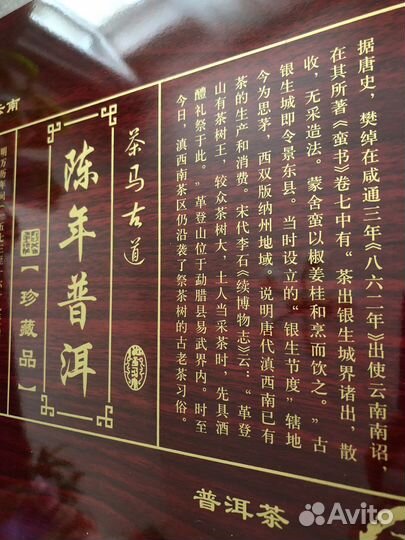 据唐史，樊绰在咸通三年《八六二年》出使云南南诏，
在其所著《蛮书》卷七中有“茶出银生城界诸出，散
收，无采造法。蒙舍蛮以椒姜桂和烹而饮之。”古
银生城即今景东县。当时设立的“银生节度”辖地
今为思茅，西双版纳州地域。说明唐代滇西南已有
茶的生产和消费。宋代李石《续博物志》云：“革登
山有茶树王，较众茶树大，土人当采茶时，先具酒
醴礼祭于此。”革登山位于勐腊县易武界内。时至
今日，滇西南茶区仍沿袭了祭茶树的古老茶习俗。
茶马古道
陈年普洱
【珍藏品】
明万历年间
云南
普洱茶
Avito